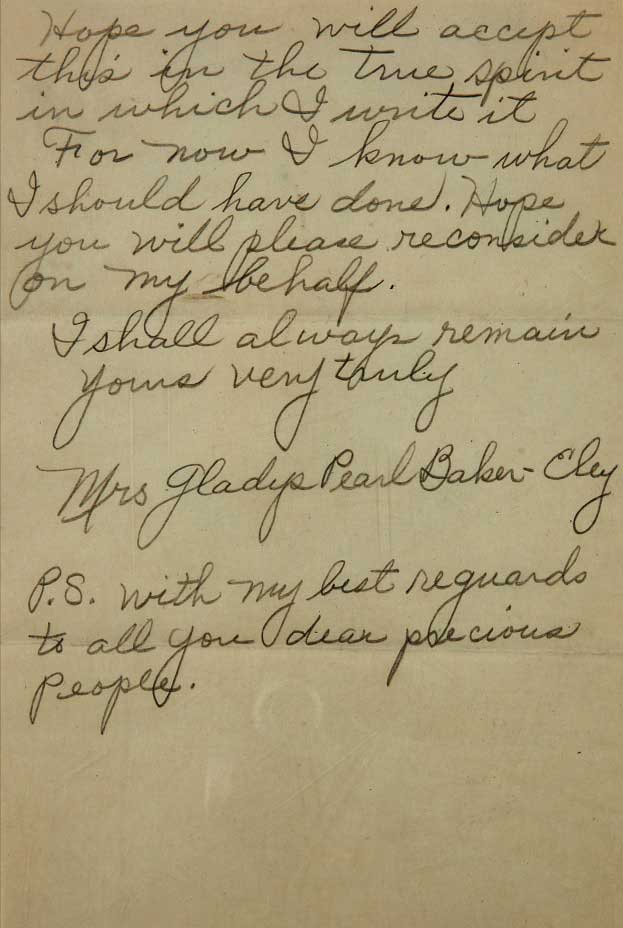 Hope you will accept
this in the true spirit
in which I write it
For now I know what
I should have done. Hope
you will please reconsider
on my behalf.
I shall always remain
yours very truly
Mrs Gladys Pearl Baker-Eley
P.S. with my best reguards
to all you dear precious
People.